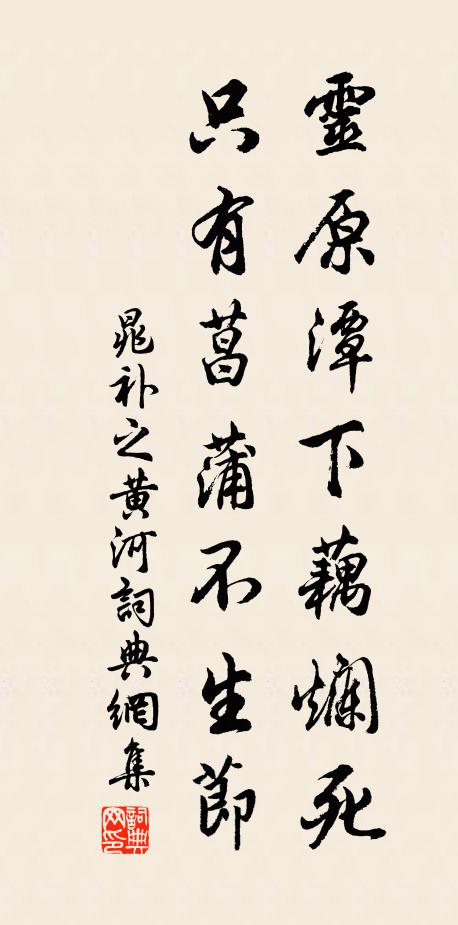 靈原潭下藕爛死
只有菖蒲不生節
晁补之黄河詞典網集
詞典网印